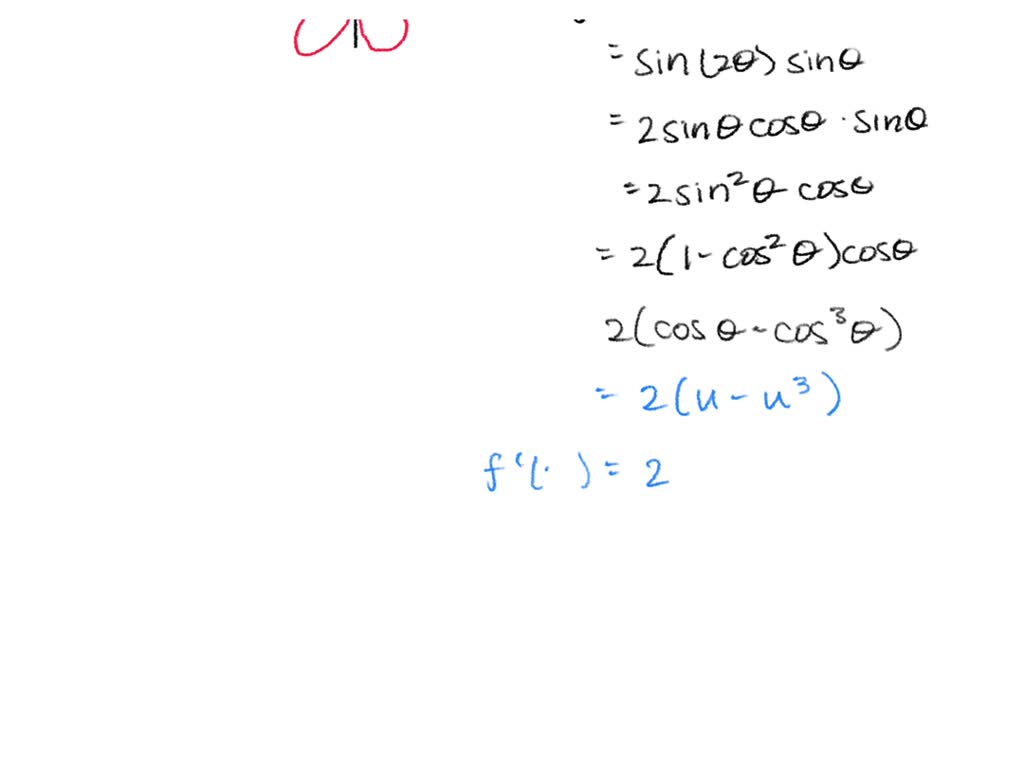 = sin(2θ) sinθ
= 2 sinθ cosθ · sinθ
= 2 sin²θ cosθ
= 2(1 - cos²θ)cosθ
2(cosθ - cos³θ)
= 2(u - u³)
f'(· ) = 2